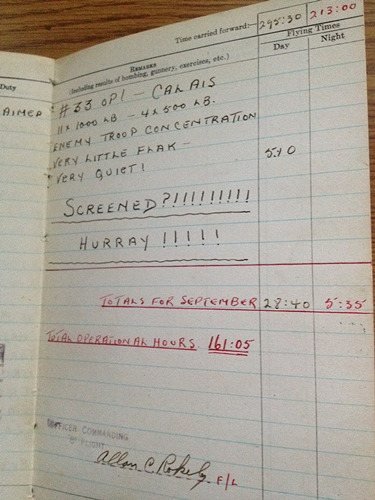 Time carried forward:— 295:30 213:00
Duty
REMARKS
(Including results of bombing, gunnery, exercises, etc.)
Flying Times
Day Night
AIMER
#33 OP! — CALAIS
11x 1000 LB. — 4x 500 LB.
ENEMY TROOP CONCENTRATION
VERY LITTLE FLAK —
VERY QUIET! 5:10
SCREENED?!!!!!!!!!!
HURRAY !!!!!
TOTALS FOR SEPTEMBER 28:40 5:35
TOTAL OPERATIONAL HOURS 161:05
OFFICER COMMANDING
FLIGHT
Allan C. F/L